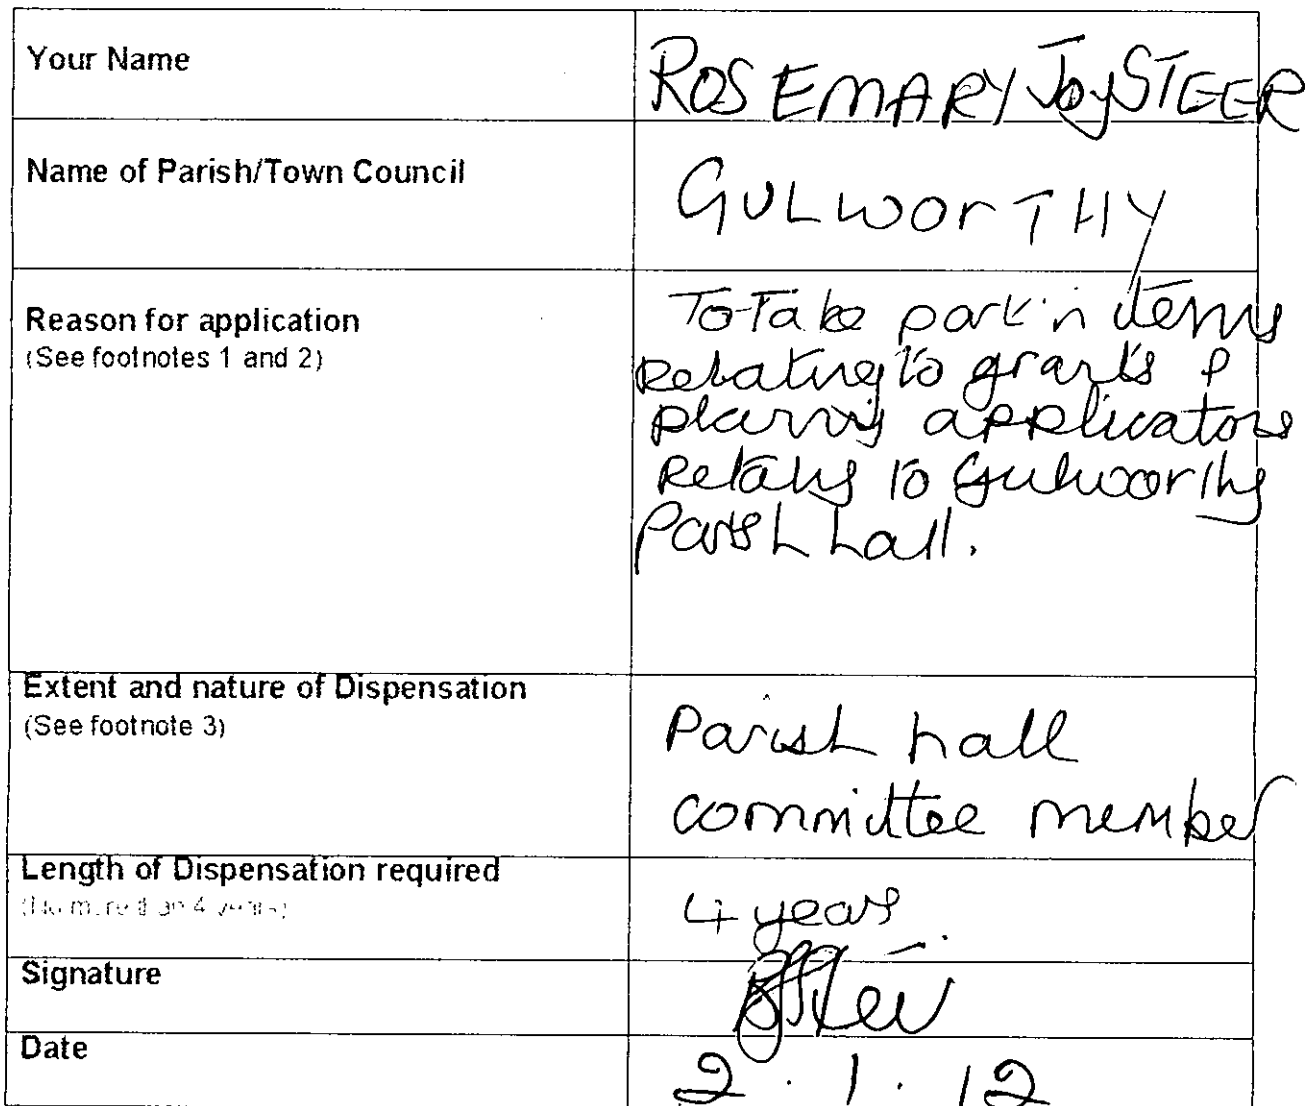 Your Name
ROSEMARY Joy STEER
Name of Parish/Town Council
GULWORTHY
Reason for application
(See footnotes 1 and 2)
To Take part in items
Relating to grants &
planning applications
Relating to Gulworthy
Parish hall.
Extent and nature of Dispensation
(See footnote 3)
Parish hall
committee member
Length of Dispensation required
(No more than 4 years)
4 years
Signature
Date
2.1.12